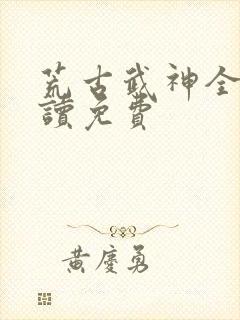 荒古武神全
讀免費
黃慶勇